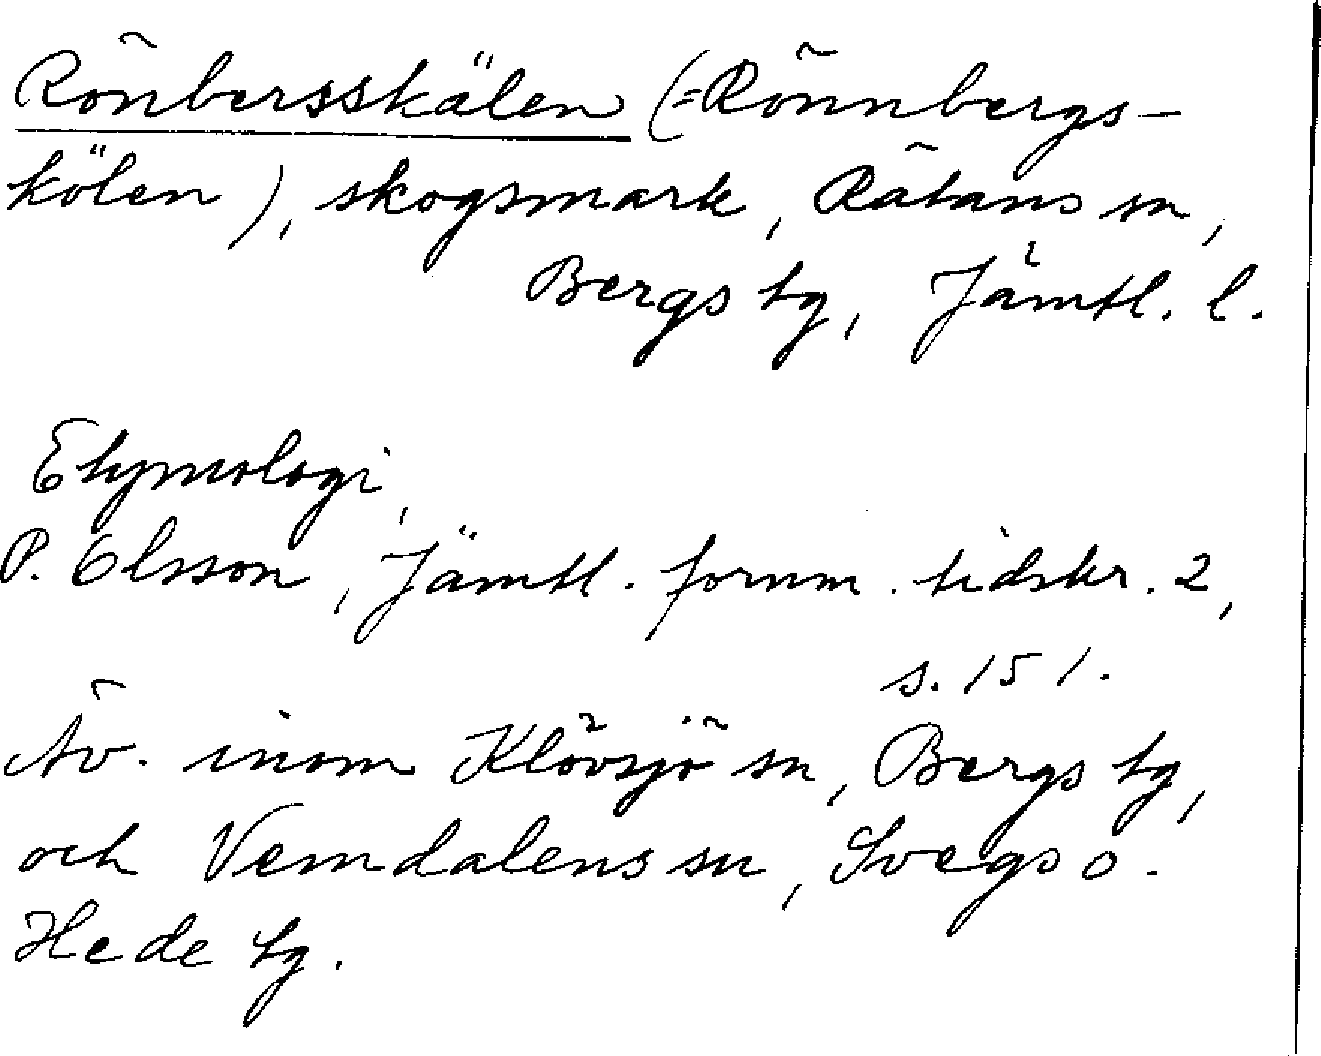 Rönbersskälen (=Rönnbergs-
kölen), skogsmark, Rätans sn,
Bergs tg, Jämtl. l.
Etymologi,
P. Olsson, Jämtl. fornm. tidskr. 2,
s. 151.
Äv. inom Klövsjö sn, Bergs tg,
och Vemdalens sn, Svegs o.
Hede tg.